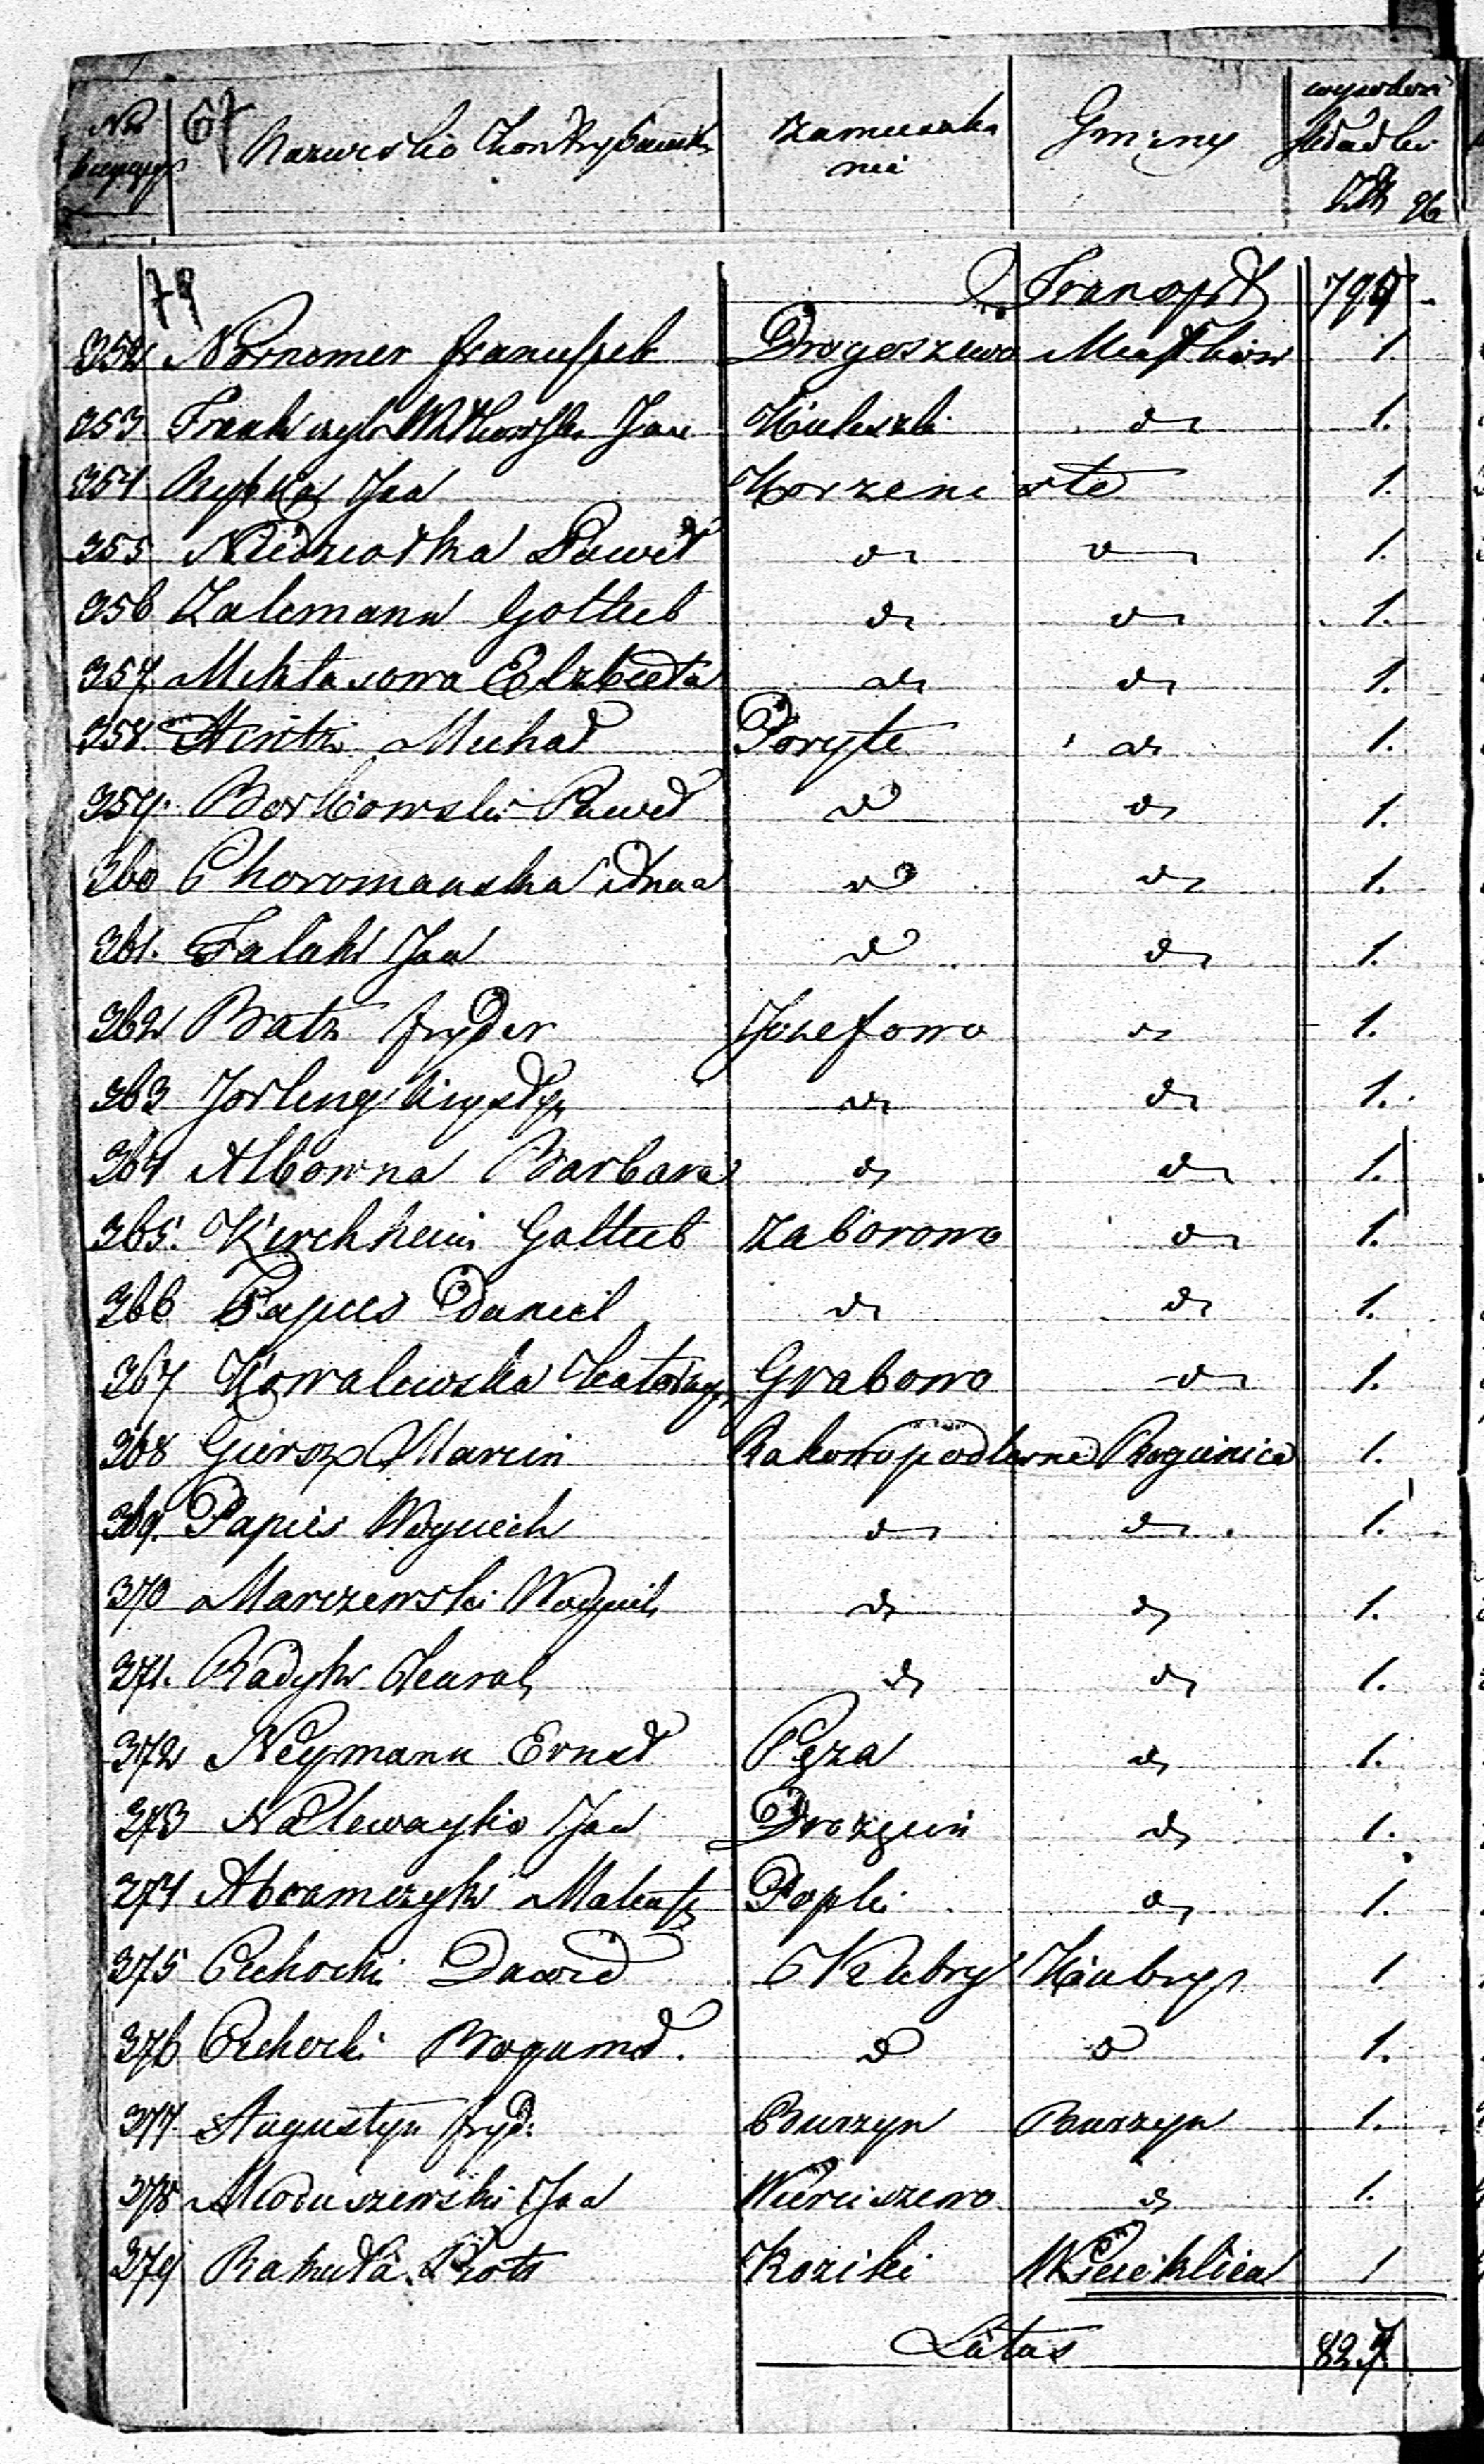 Nazwisko Kontrybuenta
zamieszka
nie
Gminy
wysokość
składki
67
79
Transport 799 -
352 Franciszek Drogoszewo Miastkowo 1.
353 Frank czyli Witkowski Jan Kuleszki d 1.
354 Rybka Jan Korzeniste 1.
355 Niedzwiedzka Paweł d d 1.
356 Zalemann Gottlieb d d 1.
357 Elżbieta d d 1.
358. Michał Poryte d 1.
359. Borkowski Paweł d d 1.
360 Choromanska Anna d d 1.
361. Falak Jan d d 1.
362 Batz fryder Jozefowo d 1.
363 Jorleng krystyn d d 1.
364 Albowna Barbara d d 1.
365. Kirchheim Gottlieb Zaborowo d 1.
366 Papies Daniel d d 1.
367 Kowalewska Katarzyn Grabowo d 1.
368 Giersz Marcin Rakowo podlesne Rogienice 1.
369. Papies Woyciech d d 1.
370 Marczewski Woyciech d d 1.
371. Radyk Karol d d 1.
372 Neymann Ernest Pęza d 1.
373 Nalewayko Jan Drozęcin d 1.
374 Abramczyk Mateusz Popki d 1.
375 Cichocki Dawid Kubry Kubry 1
376 Cichocki Bogumił. d d 1.
377 Augustyn fryd: Burzyn Burzyn 1.
378 Mioduszewski Jan Wierciszewo d 1.
379 Rakuła Piotr Koziki 1
Latus 827